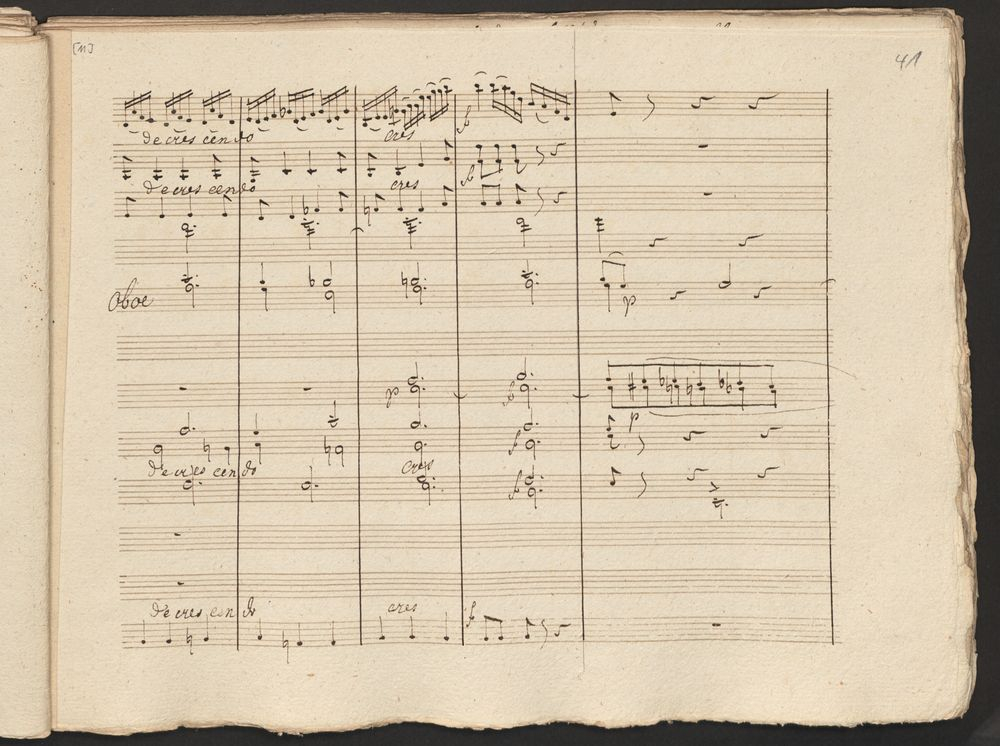 [11]
41
decrescendo
cres
f
decrescendo
cres
f
Oboe
p
p
f
p
f
decrescendo
cres
f
decrescendo
cres
f